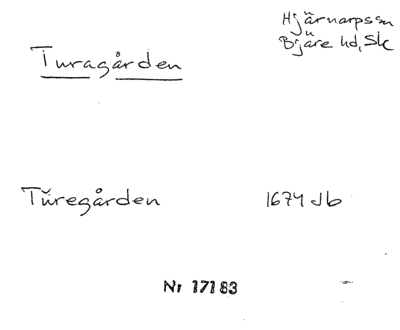 Hjärnarps sn
Bjäre hd, Sk
Turagården
Tŭregården 1674 Jb
Nr 17183